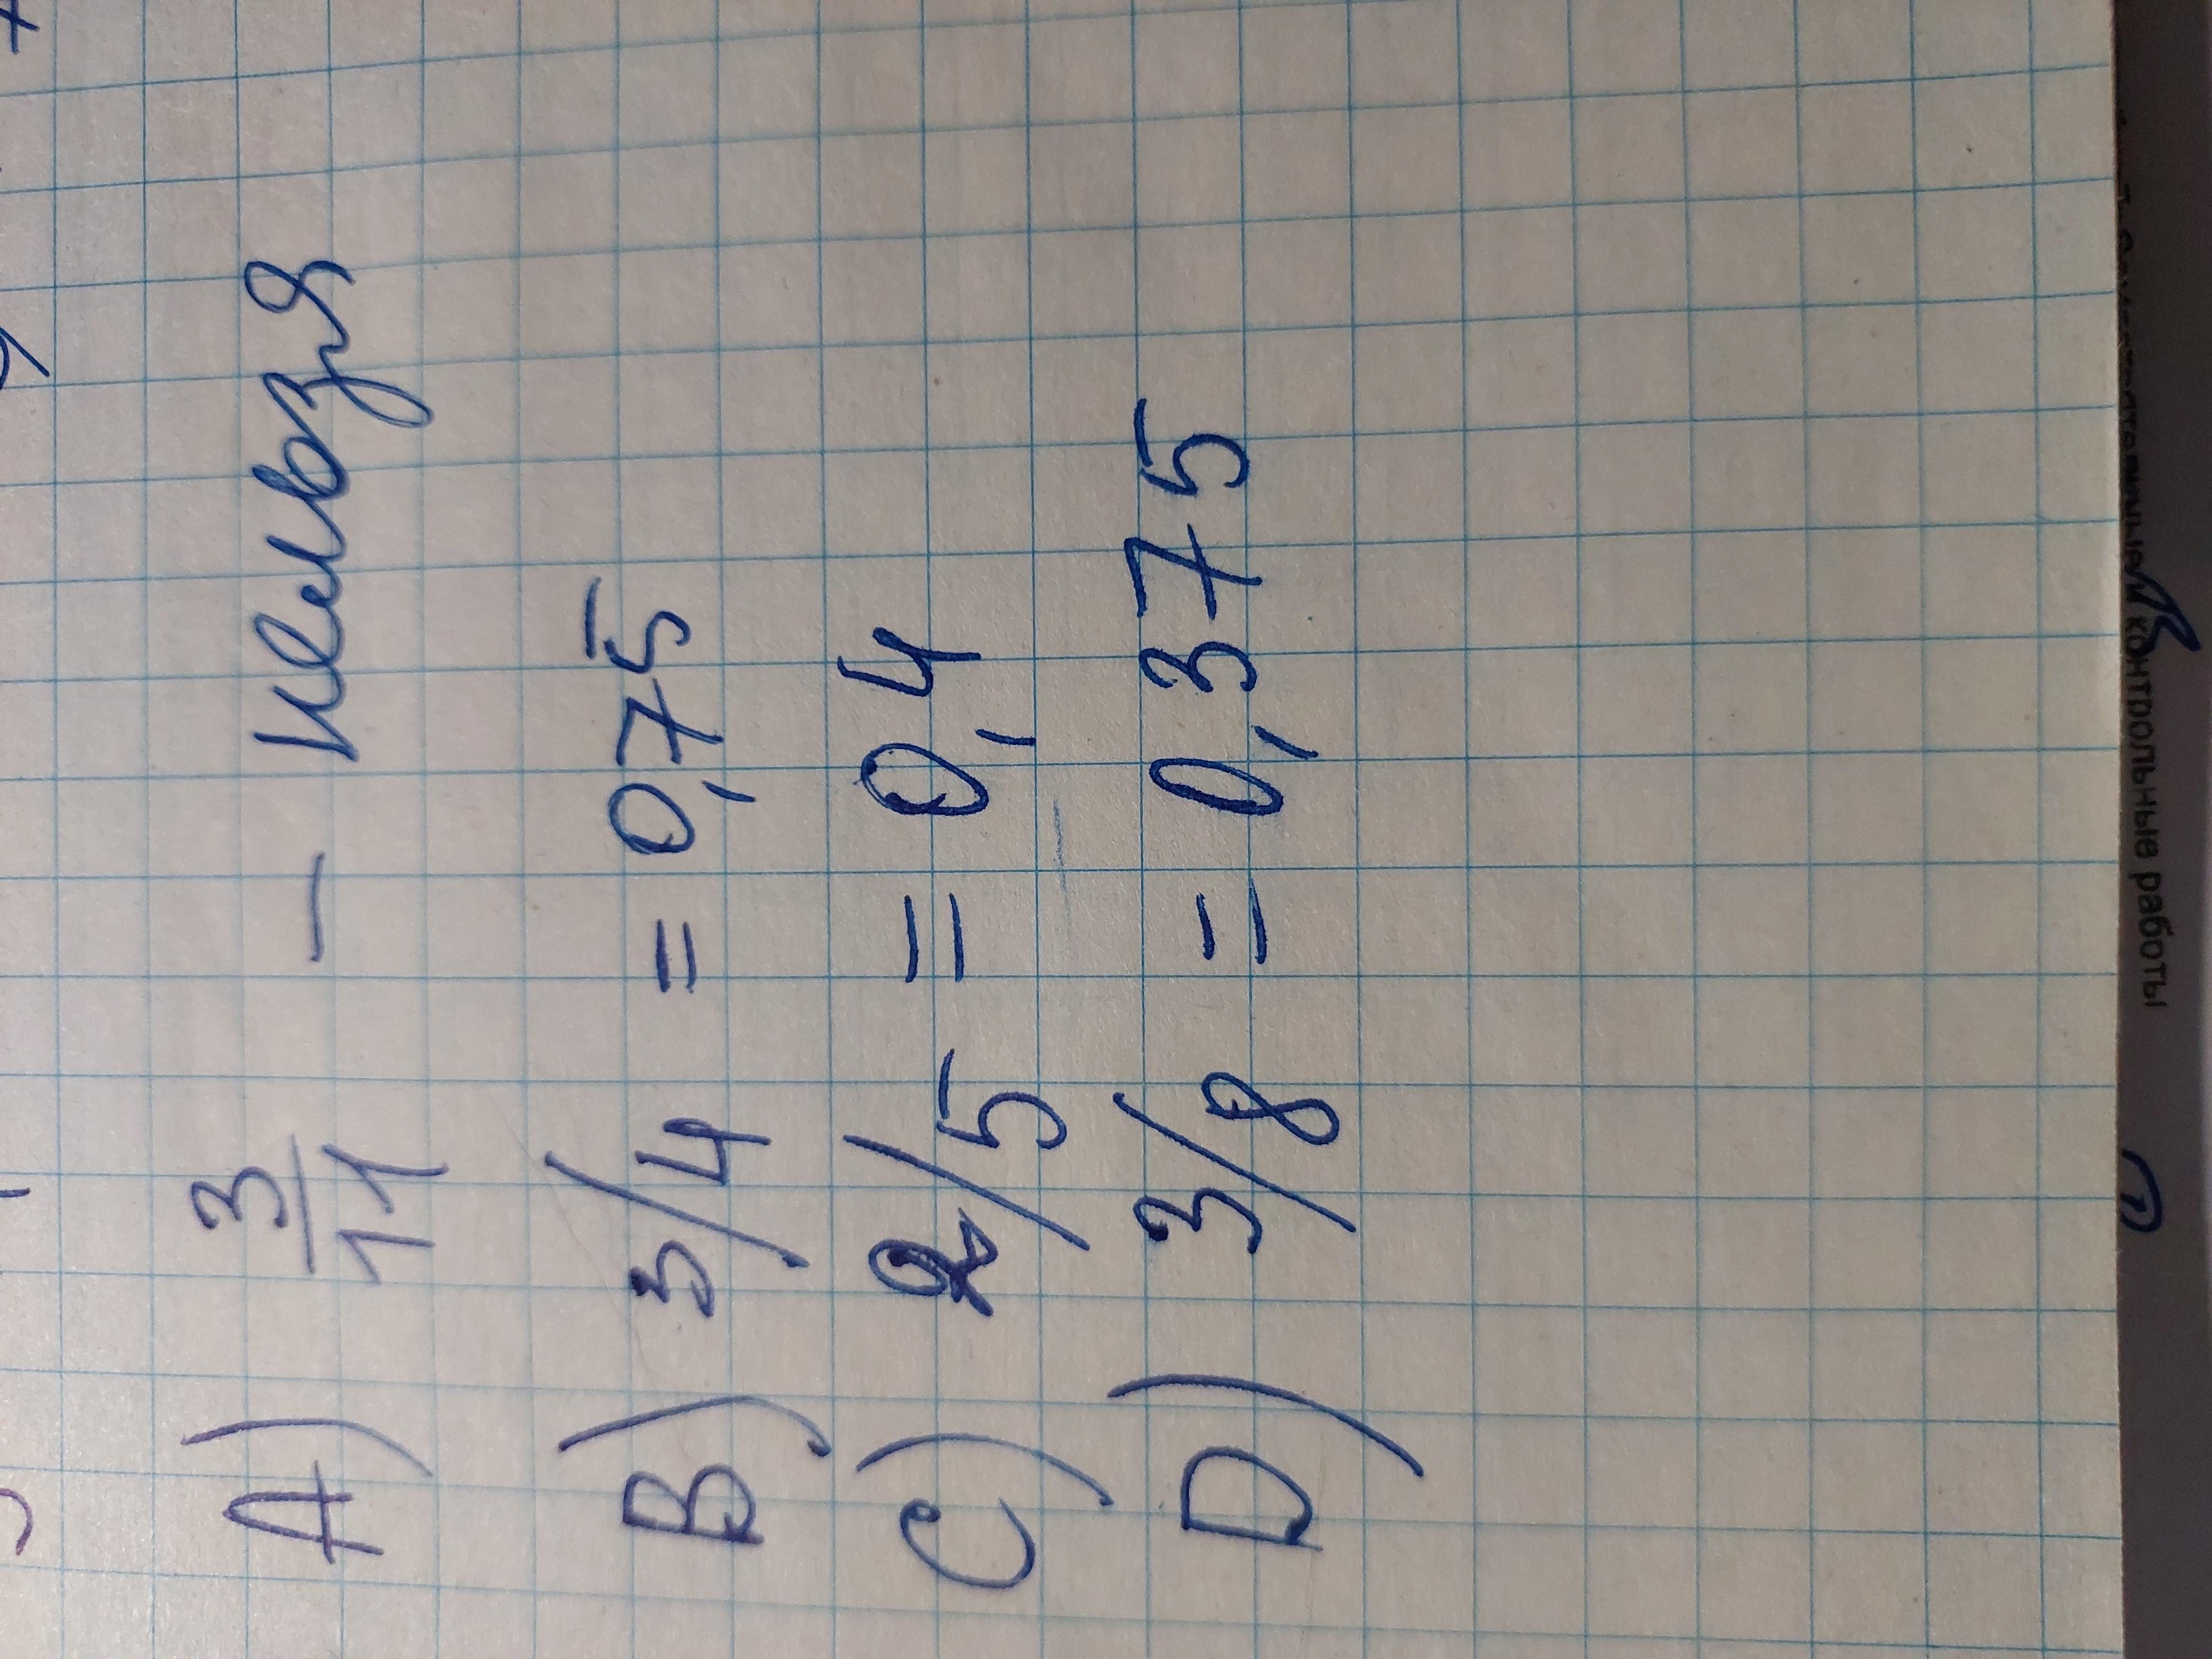 A) 3/11 — нельзя
B) 3/4 = 0,75
C) 2/5 = 0,4
D) 3/8 = 0,375
контрольные работы